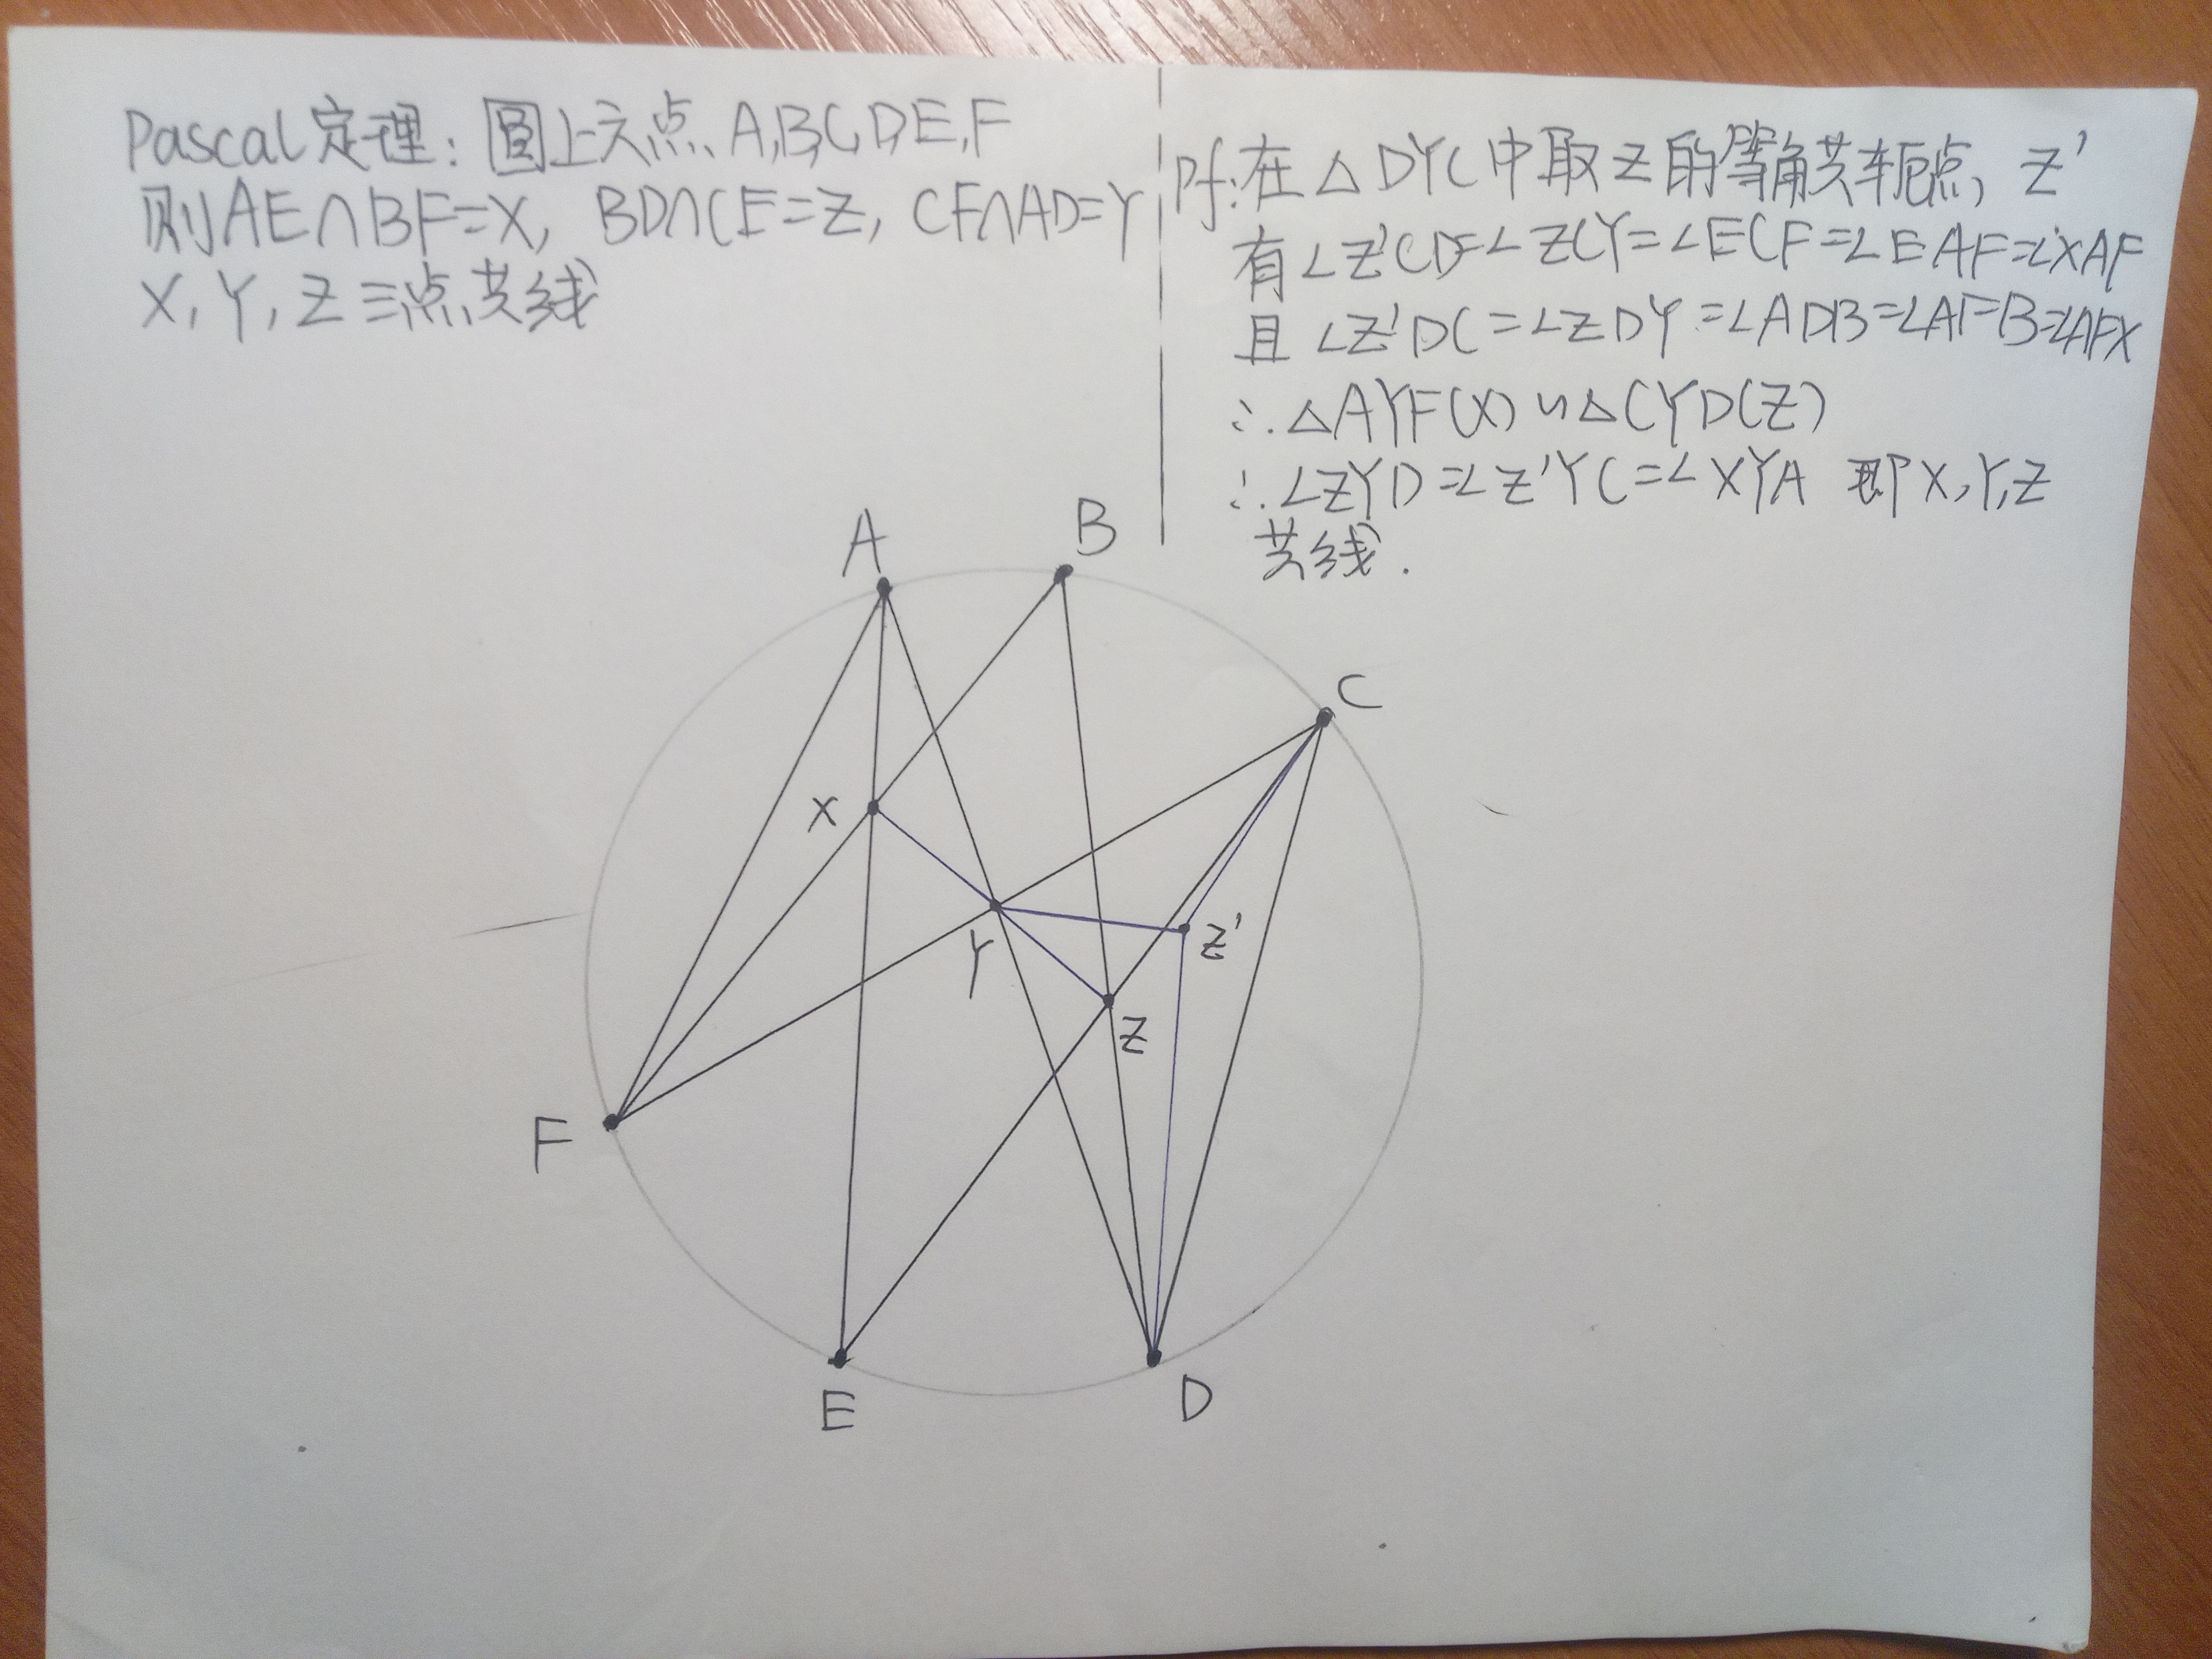 Pascal定理: 圆上六点A,B,C,D,E,F
则AE∩BF=X, BD∩CE=Z, CF∩AD=Y
X, Y, Z三点共线
Pf:在△DYC中取Z的等角共轭点, Z'
有∠Z'CD=∠ZCY=∠ECF=∠EAF=∠XAF
且∠Z'DC=∠ZDY=∠ADB=∠AFB=∠AFX
∴△AYF(X)∽△CYD(Z)
∴∠ZYD=∠Z'YC=∠XYA 即X,Y,Z
共线.
A
B
C
X
Y
Z'
Z
F
E
D